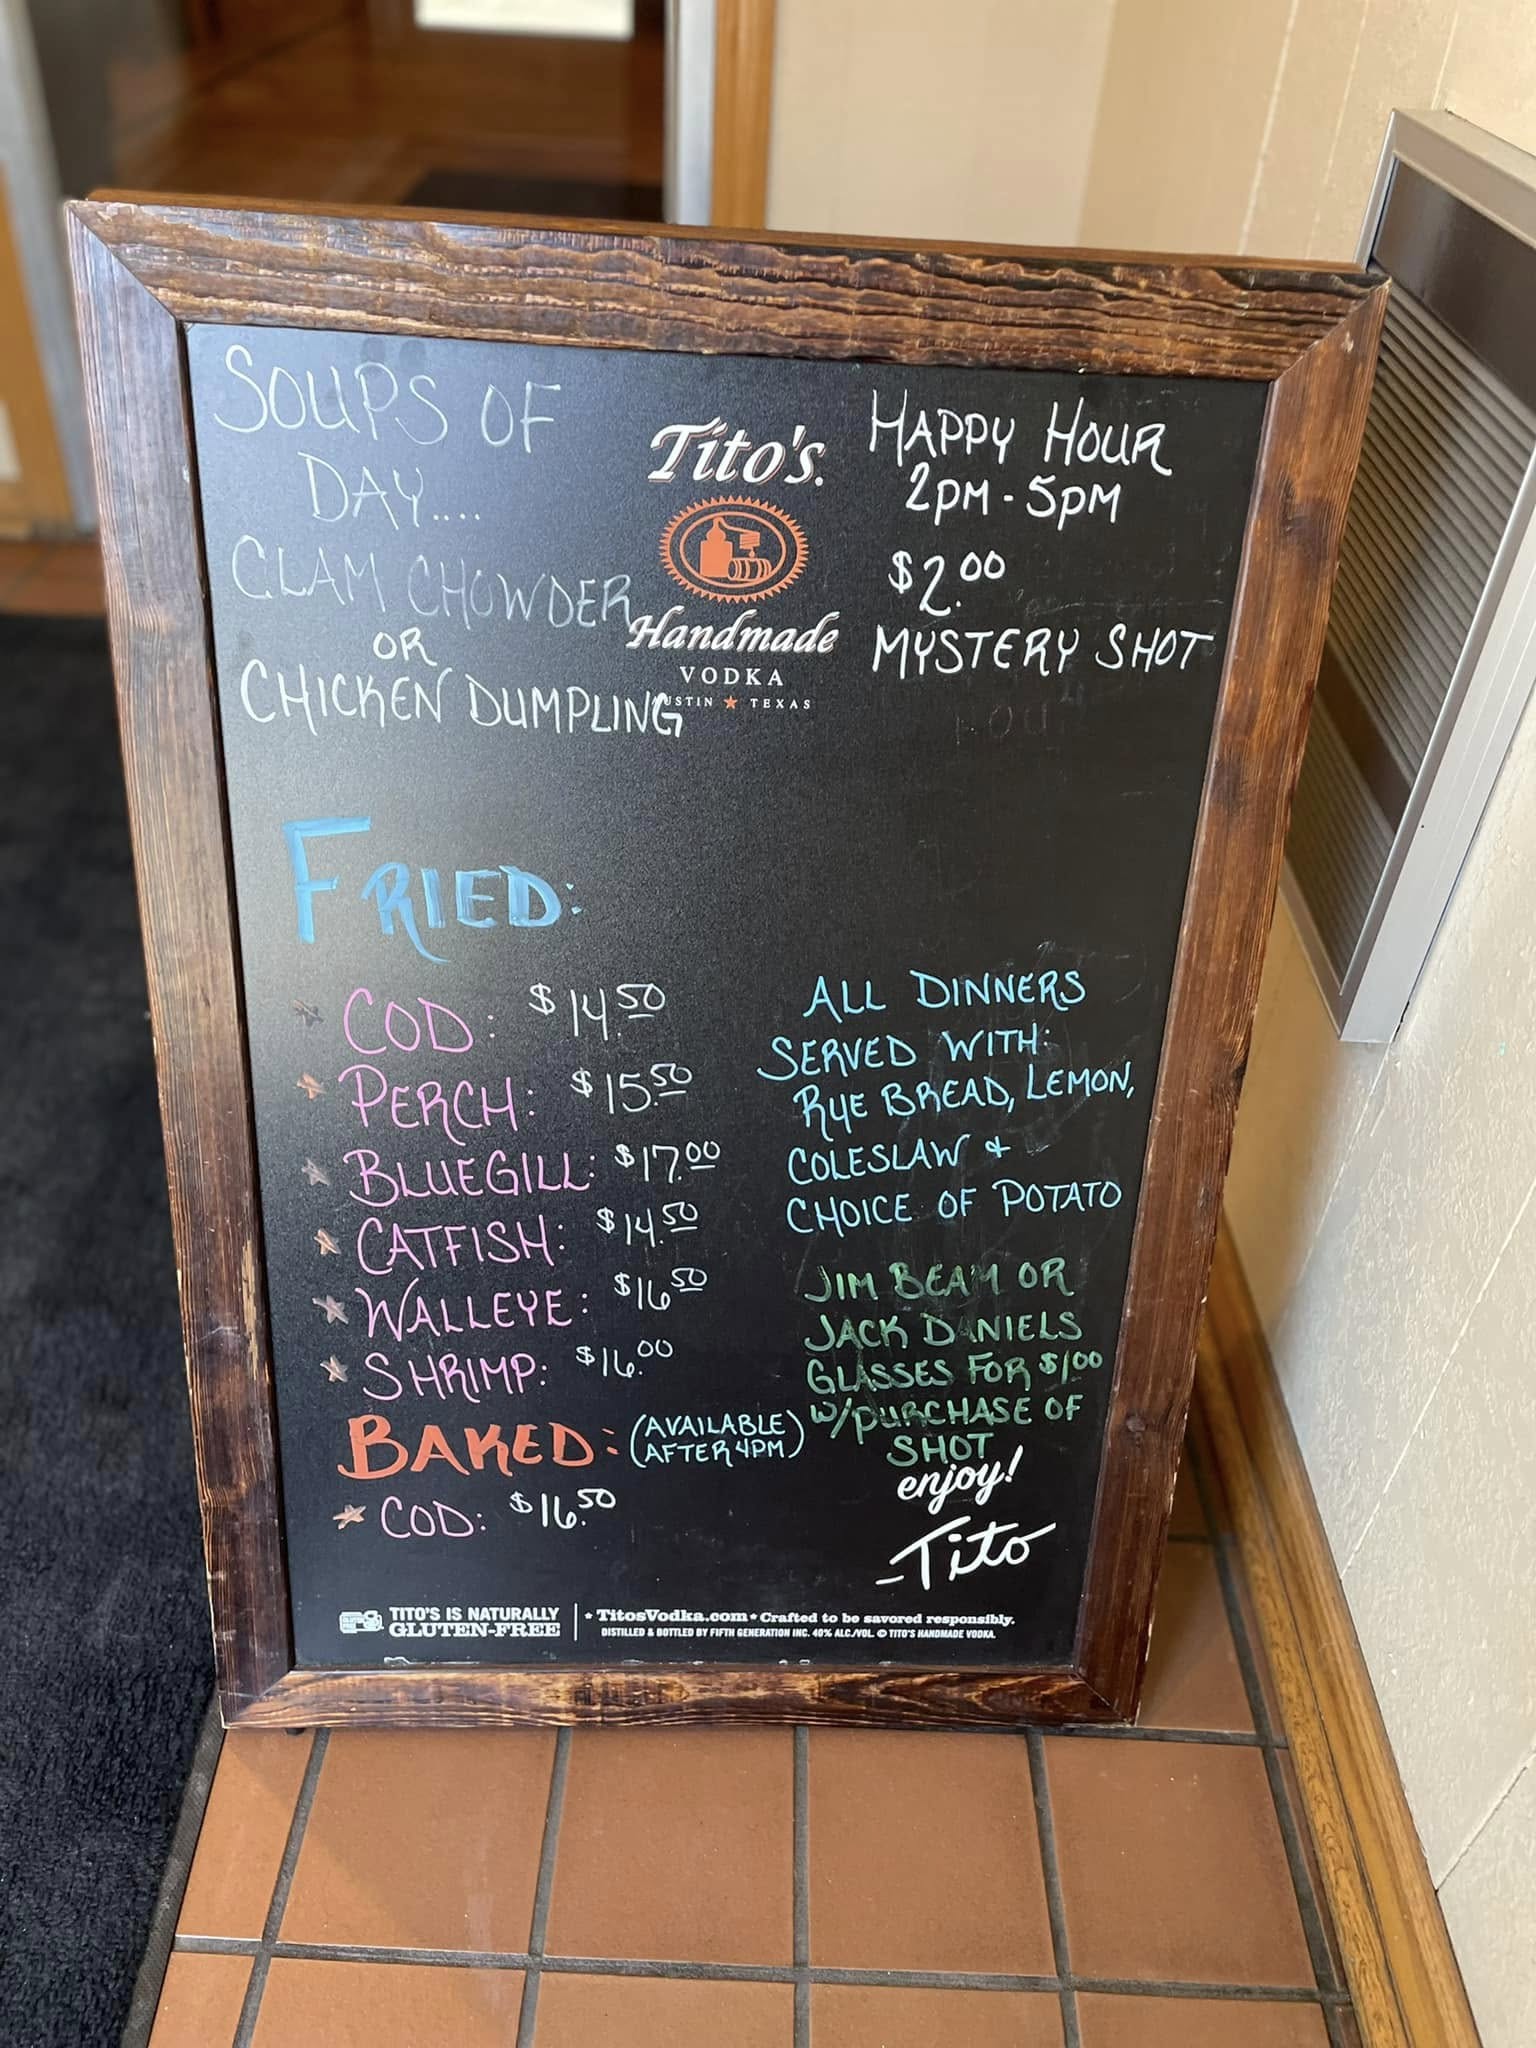 SOUPS OF
DAY....
CLAM CHOWDER
OR
CHICKEN DUMPLING
Tito's.
Handmade
VODKA
USTIN ★ TEXAS
HAPPY HOUR
2PM - 5PM
$2.00
MYSTERY SHOT
FRIED:
★ COD: $14.50
★ PERCH: $15.50
★ BLUEGILL: $17.00
★ CATFISH: $14.50
★ WALLEYE: $16.50
★ SHRIMP: $16.00
BAKED: (AVAILABLE
AFTER 4PM)
★ COD: $16.50
ALL DINNERS
SERVED WITH:
RYE BREAD, LEMON,
COLESLAW &
CHOICE OF POTATO
JIM BEAM OR
JACK DANIELS
GLASSES FOR $1.00
W/PURCHASE OF
SHOT
enjoy!
-Tito
TITO'S IS NATURALLY
GLUTEN-FREE
★ TitosVodka.com ★ Crafted to be savored responsibly.
DISTILLED & BOTTLED BY FIFTH GENERATION INC. 40% ALC./VOL. © TITO'S HANDMADE VODKA.